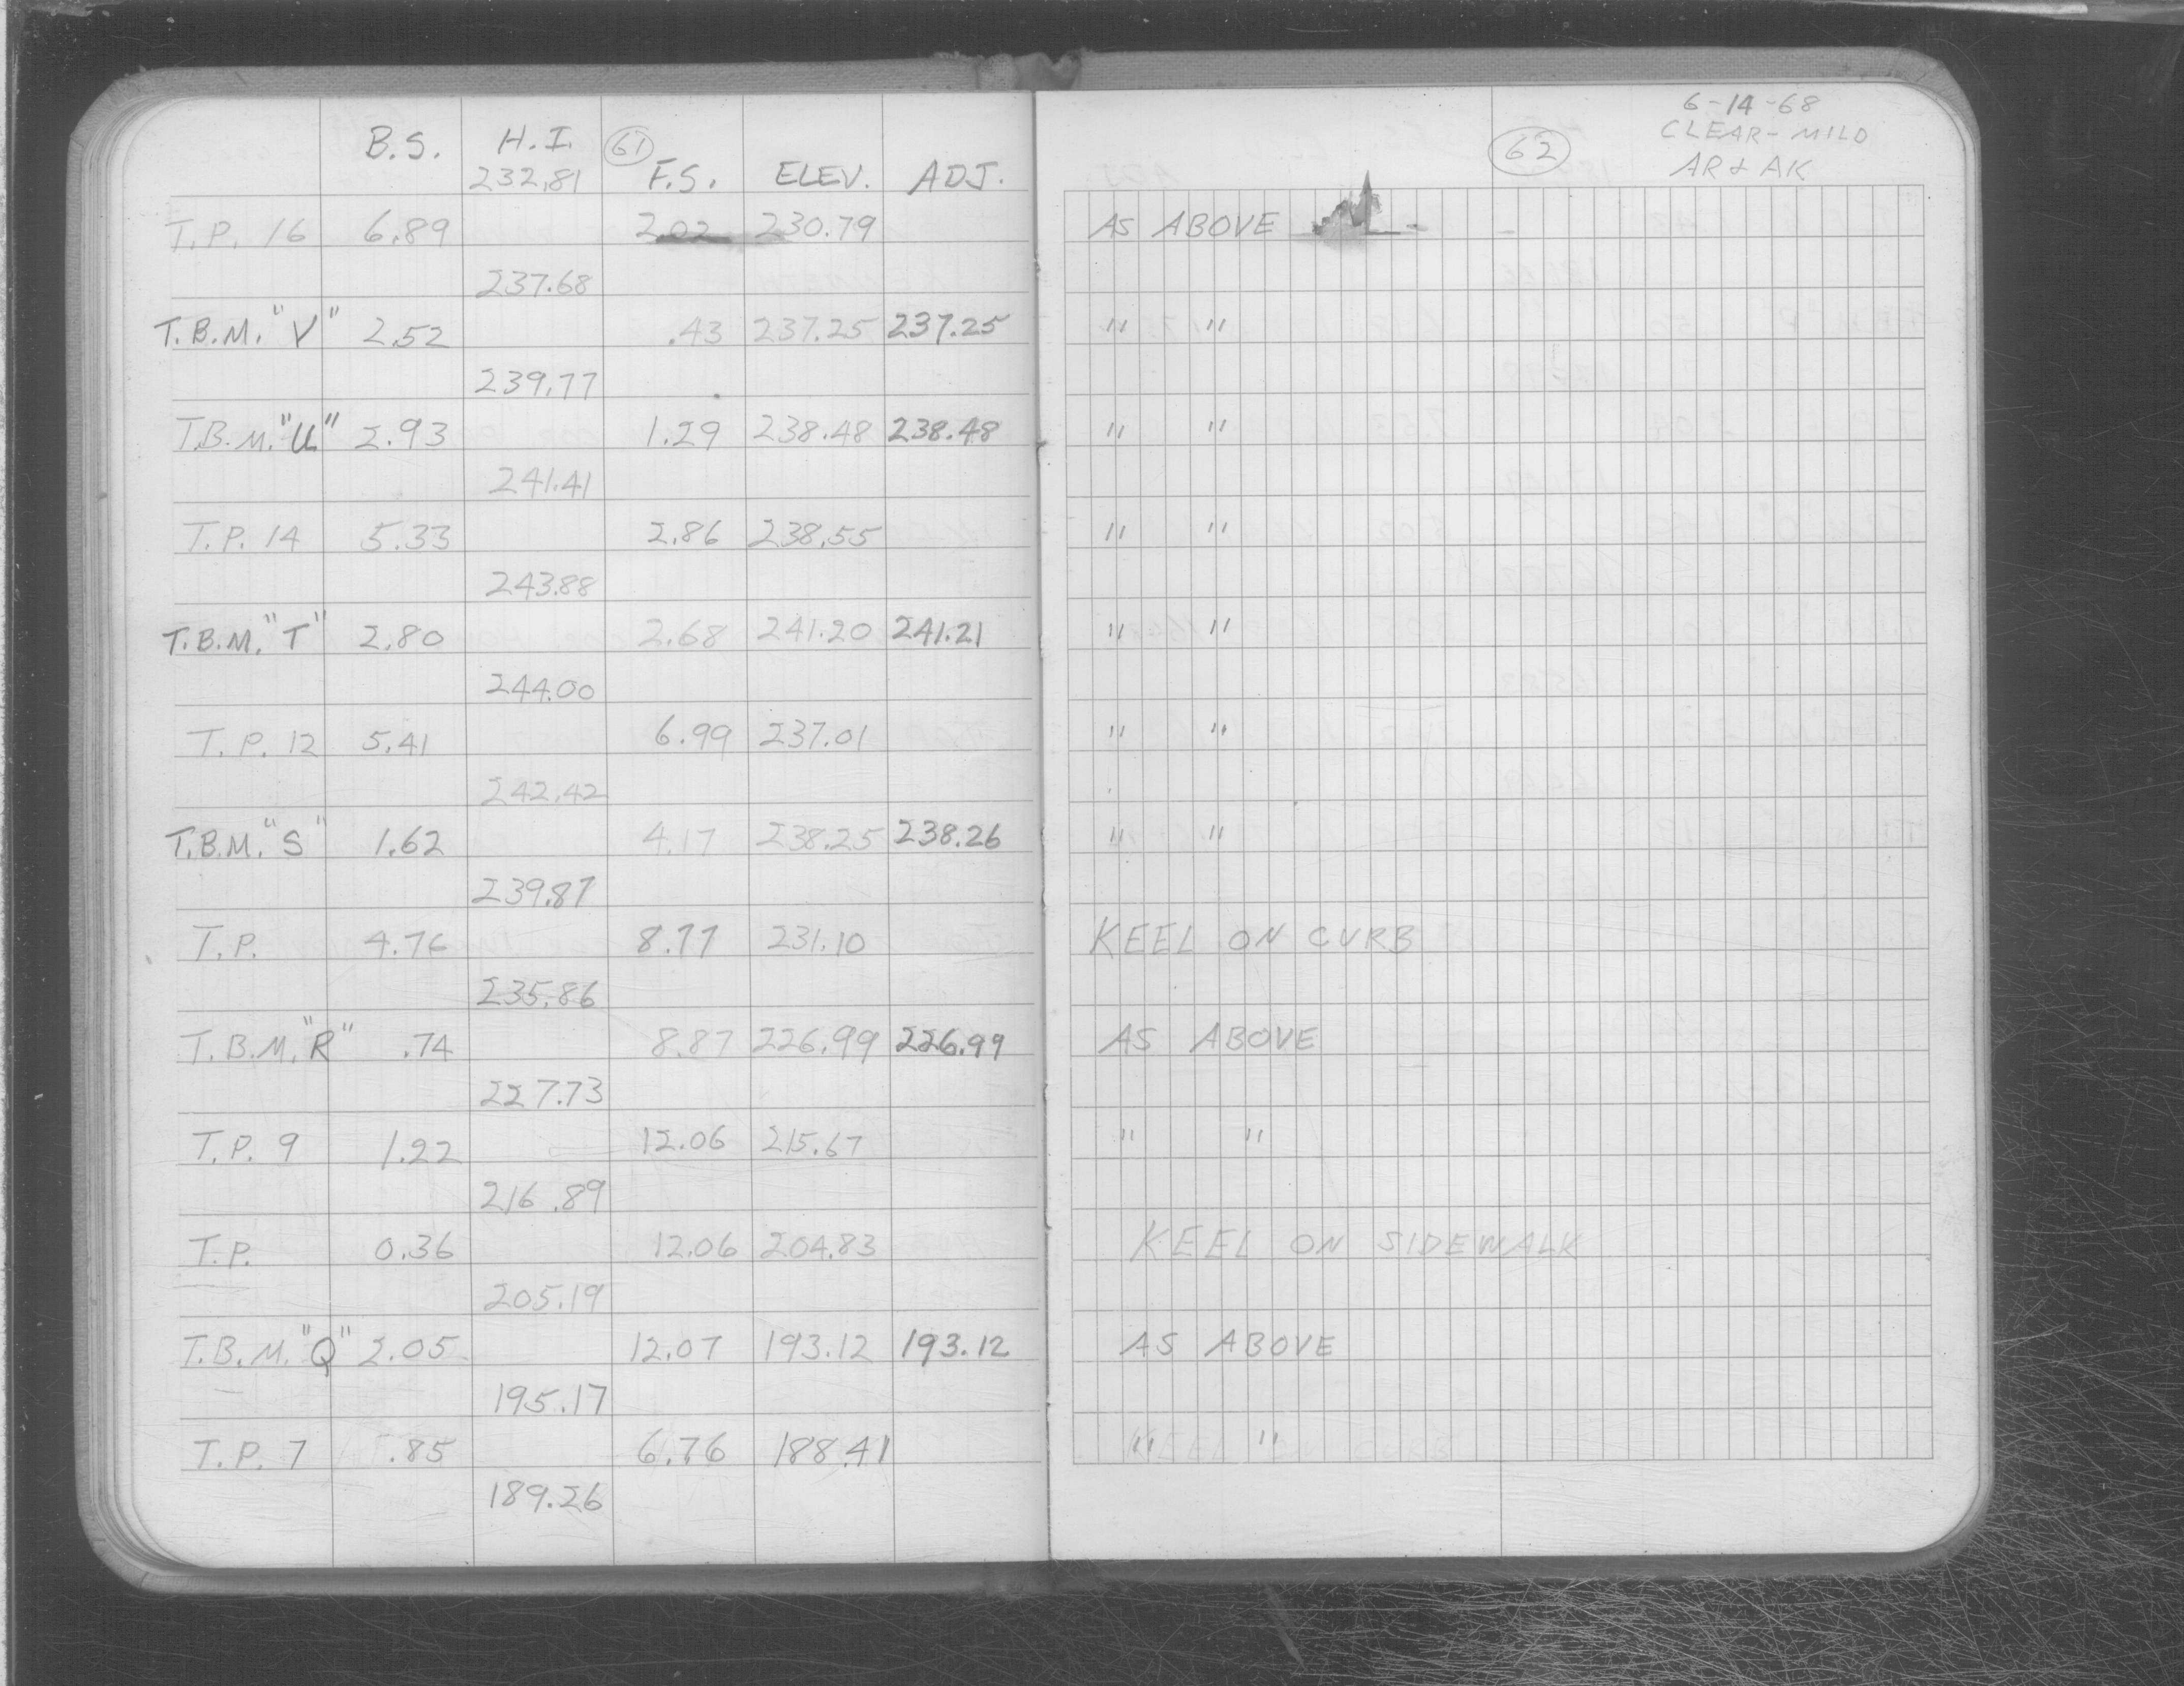 B.S. H.I. 61
232.81 F.S. ELEV. ADJ.
T.P. 16 6.89 2.02 230.79
237.68
T.B.M. "V" 2.52 .43 237.25 237.25
239.77
T.B.M. "U" 2.93 1.29 238.48 238.48
241.41
T.P. 14 5.33 2.86 238.55
243.88
T.B.M. "T" 2.80 2.68 241.20 241.21
244.00
T.P. 12 5.41 6.99 237.01
242.42
T.B.M. "S" 1.62 4.17 238.25 238.26
239.87
T.P. 4.76 8.77 231.10
235.86
T.B.M. "R" .74 8.87 226.99 226.99
227.73
T.P. 9 1.22 12.06 215.67
216.89
T.P. 0.36 12.06 204.83
205.19
T.B.M. "Q" 2.05 12.07 193.12 193.12
195.17
T.P. 7 .85 6.76 188.41
189.26
6-14-68
62 CLEAR - MILD
AR & AK
AS ABOVE
" "
" "
" "
" "
" "
" "
KEEL ON CURB
AS ABOVE
" "
KEEL ON SIDEWALK
AS ABOVE
" "